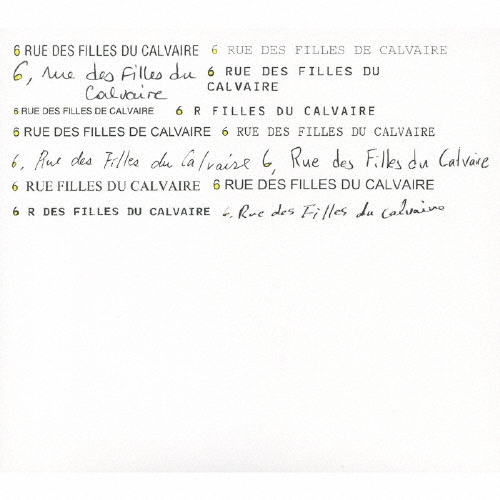 6 RUE DES FILLES DU CALVAIRE 6 RUE DES FILLES DE CALVAIRE
6, rue des Filles du Calvaire 6 RUE DES FILLES DU CALVAIRE
6 RUE DES FILLES DE CALVAIRE 6 R FILLES DU CALVAIRE
6 RUE DES FILLES DE CALVAIRE 6 RUE DES FILLES DU CALVAIRE
6, Rue des Filles du Calvaire 6, Rue des Filles du Calvaire
6 RUE FILLES DU CALVAIRE 6 RUE DES FILLES DU CALVAIRE
6 R DES FILLES DU CALVAIRE 6, Rue des Filles du Calvaire